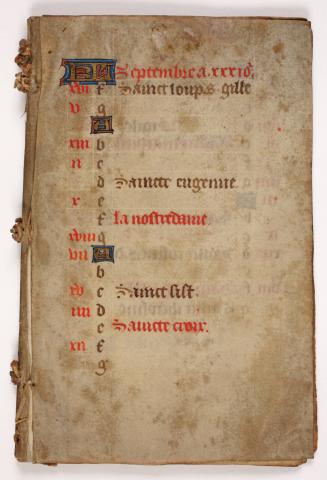 KL Septembre a.xxxio.
xvi f Sainct loup.s gille
v g
A
xiii b
ii c
d Saincte eugenne.
x e
f La nostredame.
xviii g
vii A
b
xv c Sainct sist.
iiii d
e Saincte croix.
xii f
g